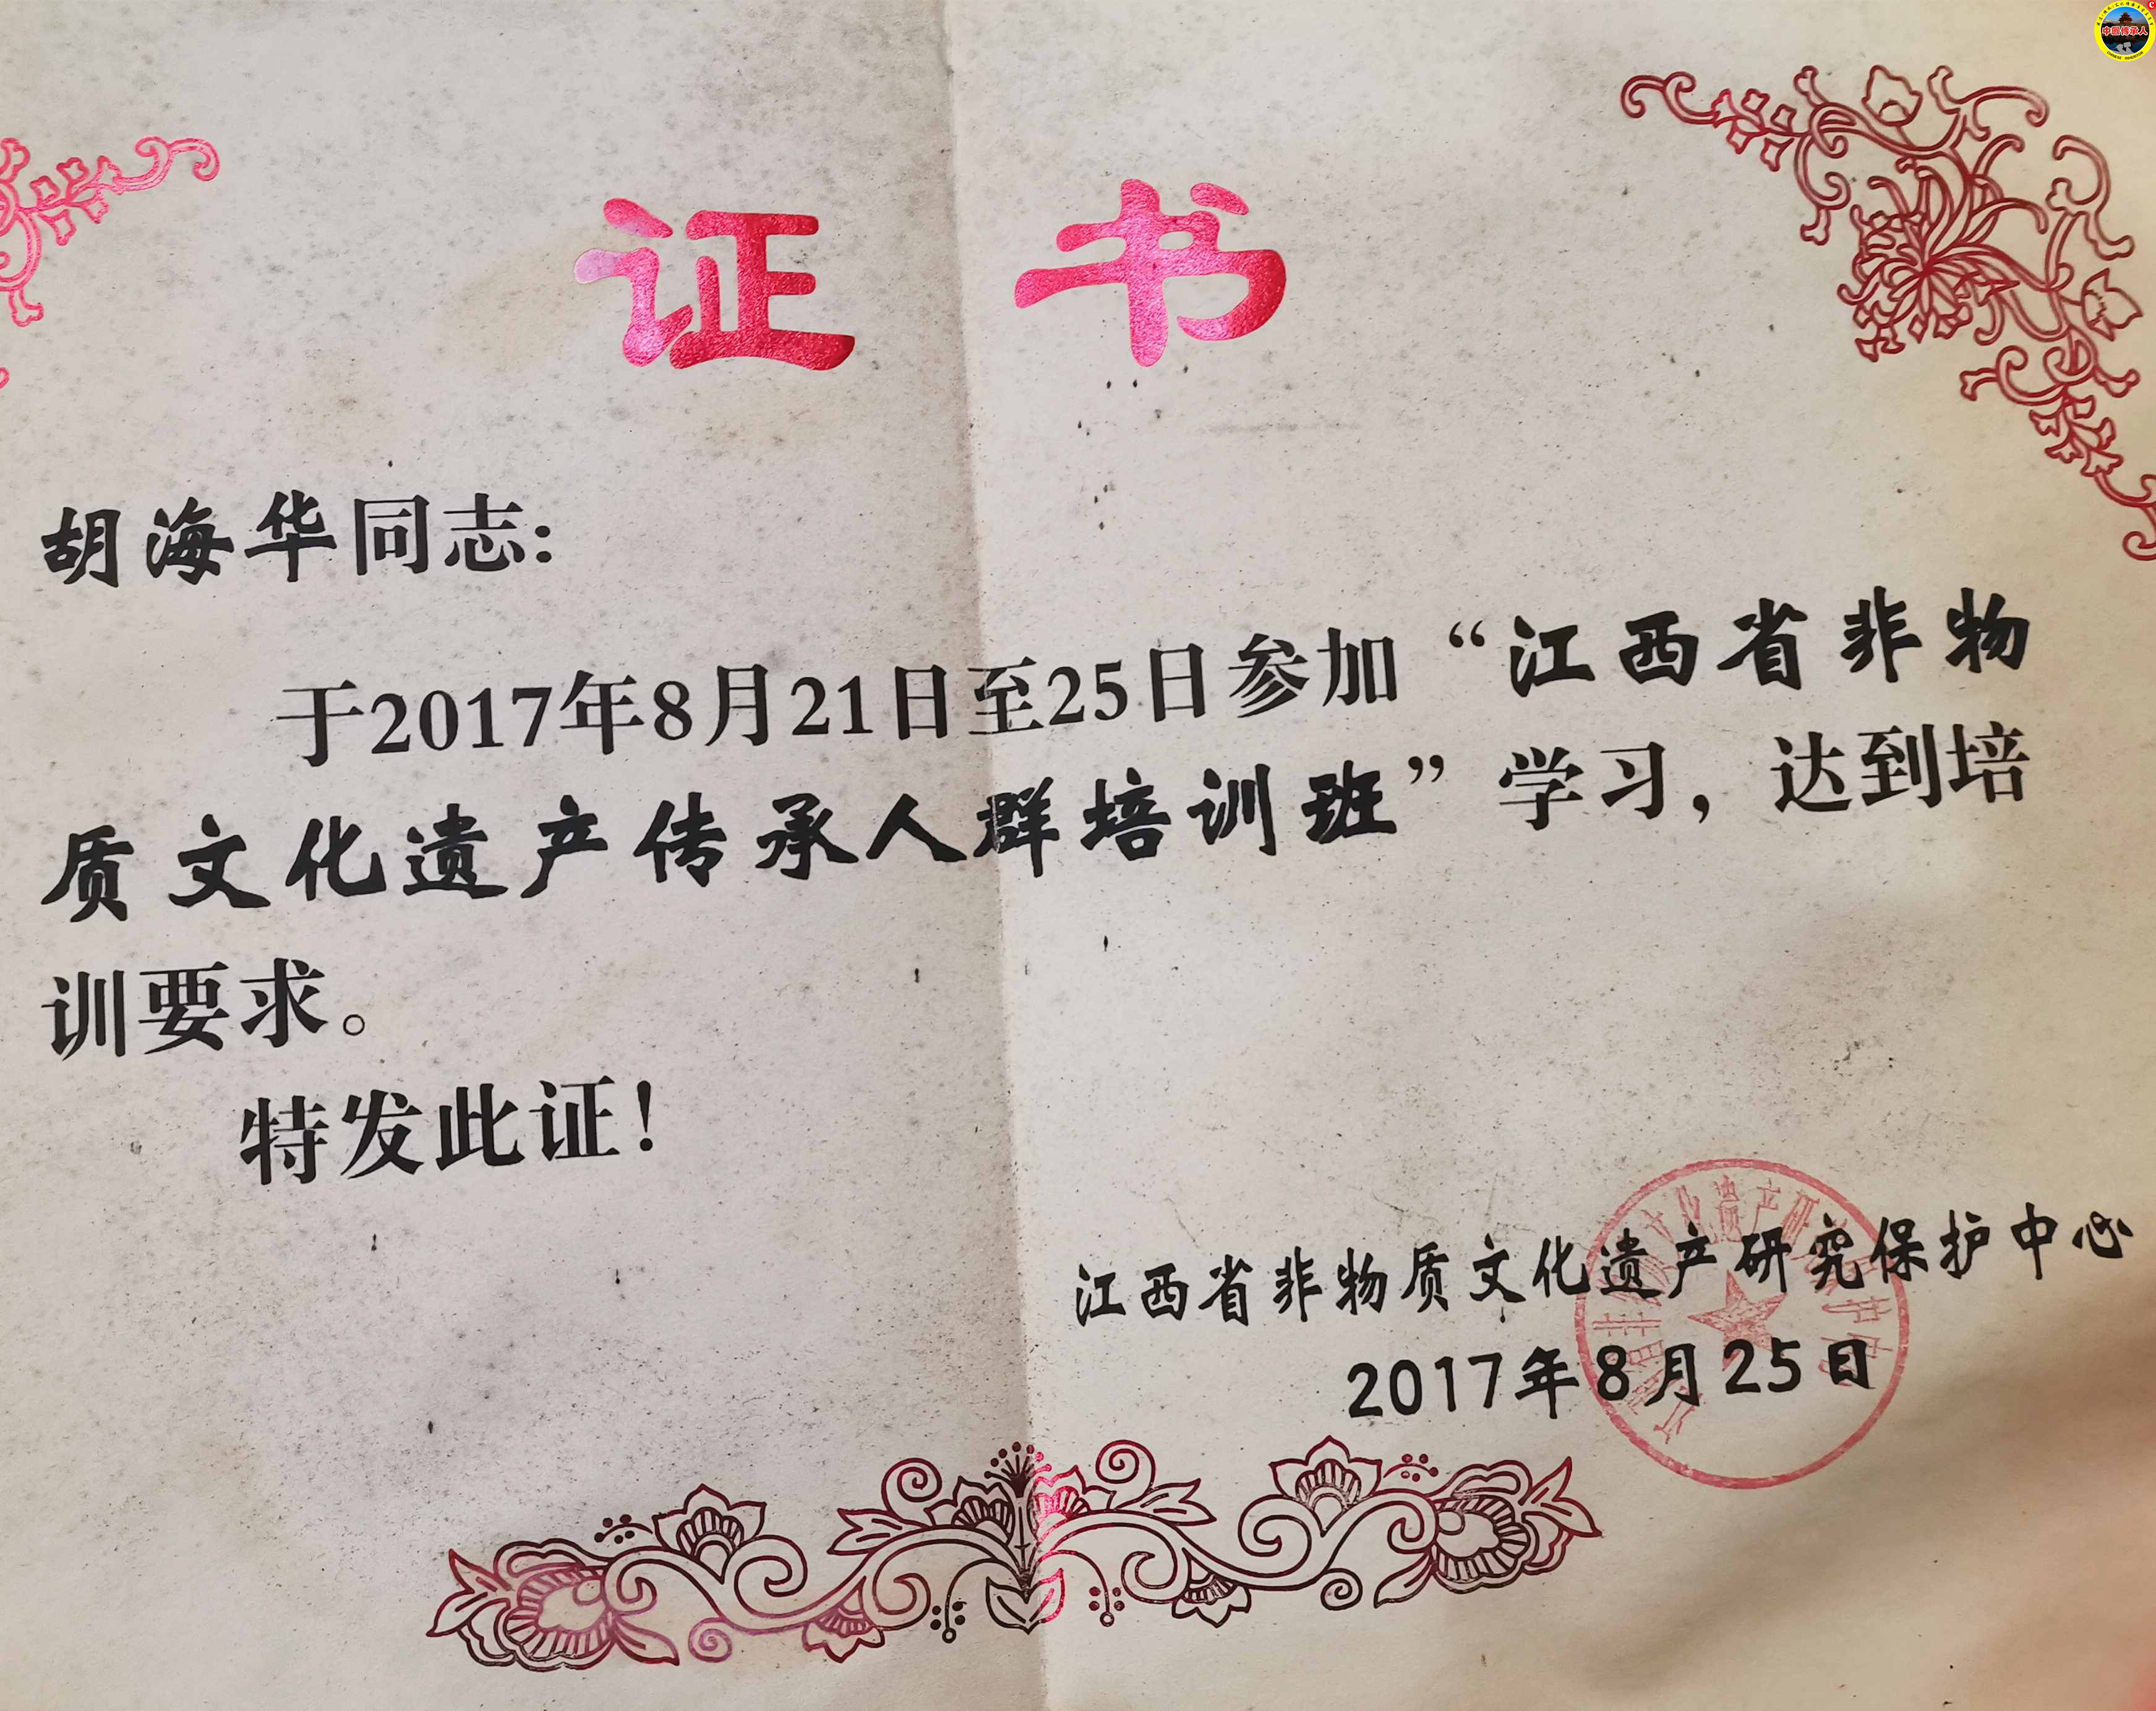 中国传承人
证书
胡海华同志:
于2017年8月21日至25日参加“江西省非物
质文化遗产传承人群培训班”学习，达到培
训要求。
特发此证！
江西省非物质文化遗产研究保护中心
2017年8月25日